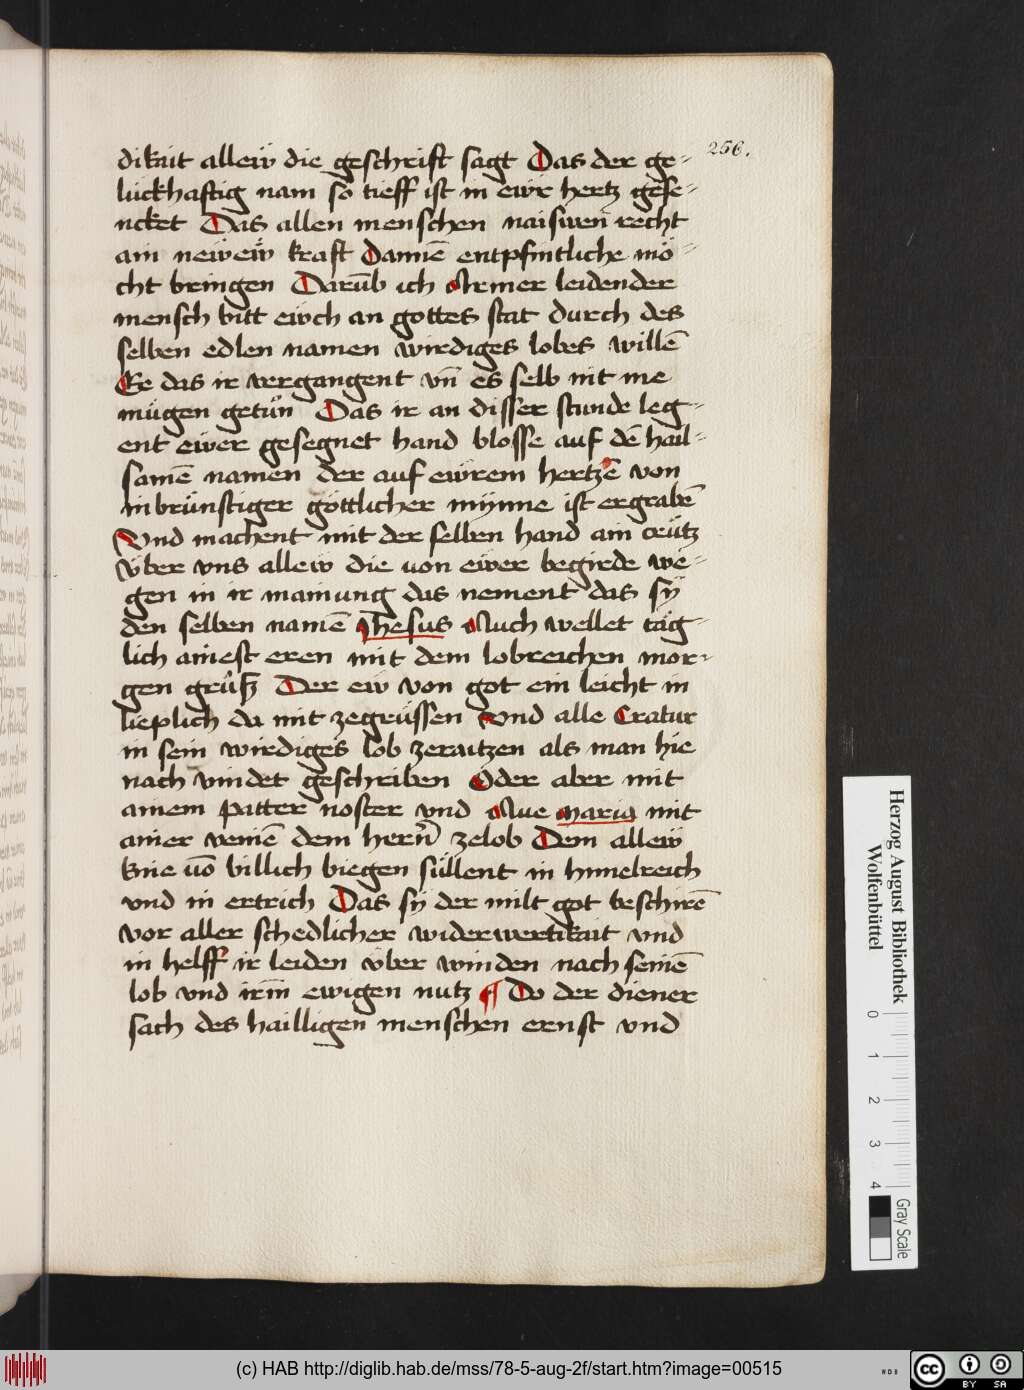 256.
dikait allew̋ die geschrift sagt Das der ge⸗
lückhaftig nam so tieff ist in ewr̈ hertz gese⸗
ncket Das allen menschen naiswen recht
ain neẅeẅ kraft Dannē entpfintliche mö⸗
cht bringen Darūb ich Armer leidender
mensch bitt eẅch an gottes stat durch des
selben edlen namen wirdiges lobes willē
Ee das ir vergangent vn̄ es selb nit me
mügen getůn Das ir an disser stunde leg⸗
ent eẅer gesegnet hand blosse auf dē hail⸗
samē namen der auf eẅrem hertzē von
inbrünstiger göttlicher mynne ist ergrabē
Vnd machent mit der selben hand ain creütz
über vns alleẅ die von eẅer begirde we⸗
gen in ir mainung das nement das sÿ
den selben namē Jhesus Auch wellet täg⸗
lich ainest eren mit dem lobreichen mor⸗
gen grůß Der eẅ von got ein leicht in
lieplich da mit zegrüssen Vnd alle Cratur
in sein wirdiges lob zeraitzen als man hie
nach vindet geschriben Oder aber mit
ainem patter noster vnd Aue maria mit
ainer veniē dem hern̄ zelob Dem alleẅ
knie vō billich biegen süllent in himelreich
vnd in ertrich Das sÿ der milt got beschirē
vor aller schedlicher widerwertikait vnd
in helff ir leiden über winden nach seinē
lob vnd irm̄ ewigen nutz ¶ Do der diener
sach des hailligen menschen ernst vnd
Herzog August Bibliothek
Wolfenbüttel
0 1 2 3 4
Gray Scale
(c) HAB http://diglib.hab.de/mss/78-5-aug-2f/start.htm?image=00515
cc BY SA